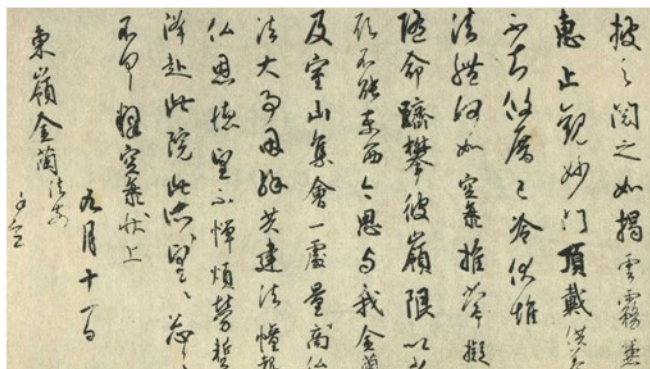 披之閲之如揭雲霧兼
恵止観妙門頂戴供養
不知攸厝已冷伏惟
法體何如空海推常擬
随命躋攀彼嶺限以少
願不能東西今思与我金蘭
及室山集會一處量商仏
法大事因縁共建法幢報
仏恩徳望不憚煩勞蹔
降赴此院此所望々忩々
不具釋空海状上
九月十一日
東嶺金蘭法前
謹空